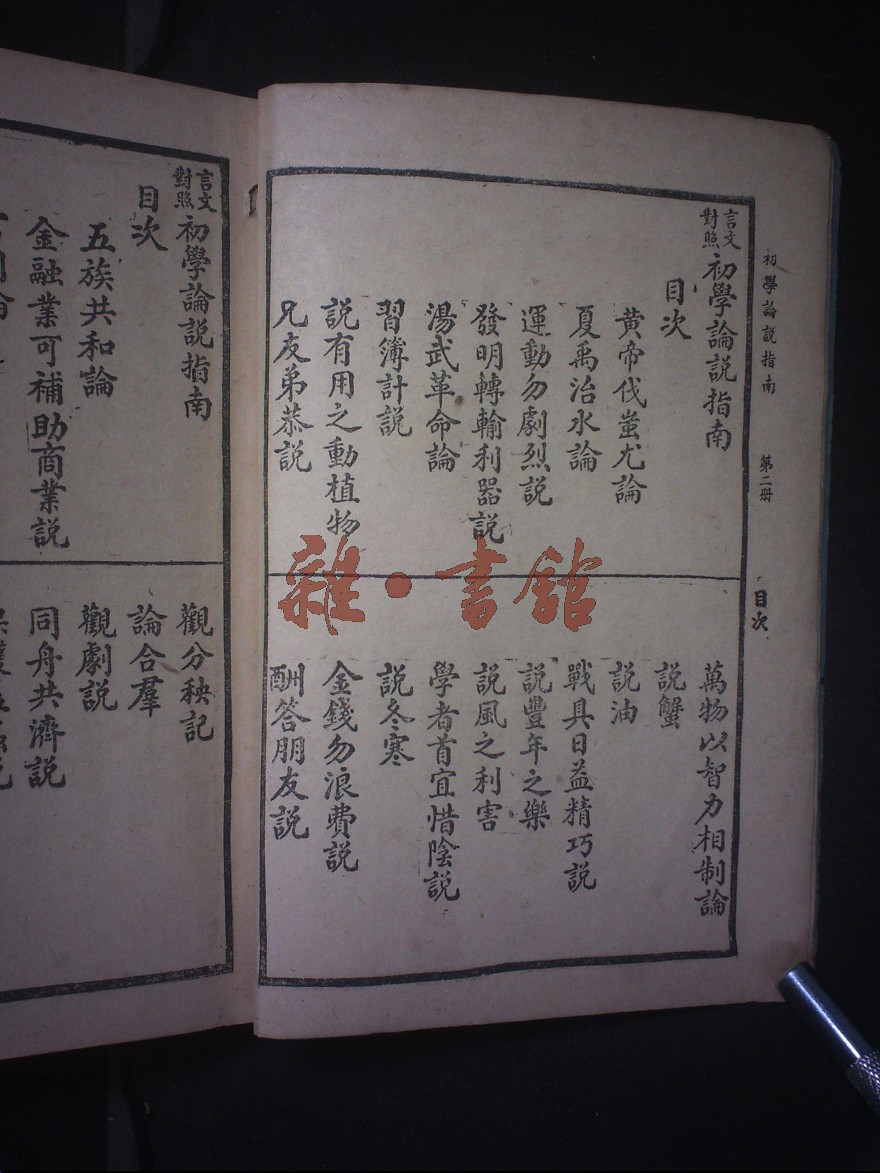 初學論說指南
第二册
目次
言文
對照
初學論說指南
目次
黃帝伐蚩尤論
夏禹治水論
運動勿劇烈說
發明轉輸利器說
湯武革命論
習簿計說
說有用之動植物
兄友弟恭說
萬物以智力相制論
說蟹
說油
戰具日益精巧說
說豐年之樂
說風之利害
學者首宜惜陰說
說冬寒
金錢勿浪費說
酬答朋友說
言文
對照
初學論說指南
目次
五族共和論
金融業可補助商業說
觀分秧記
論合羣
觀劇說
同舟共濟說
雜·書館